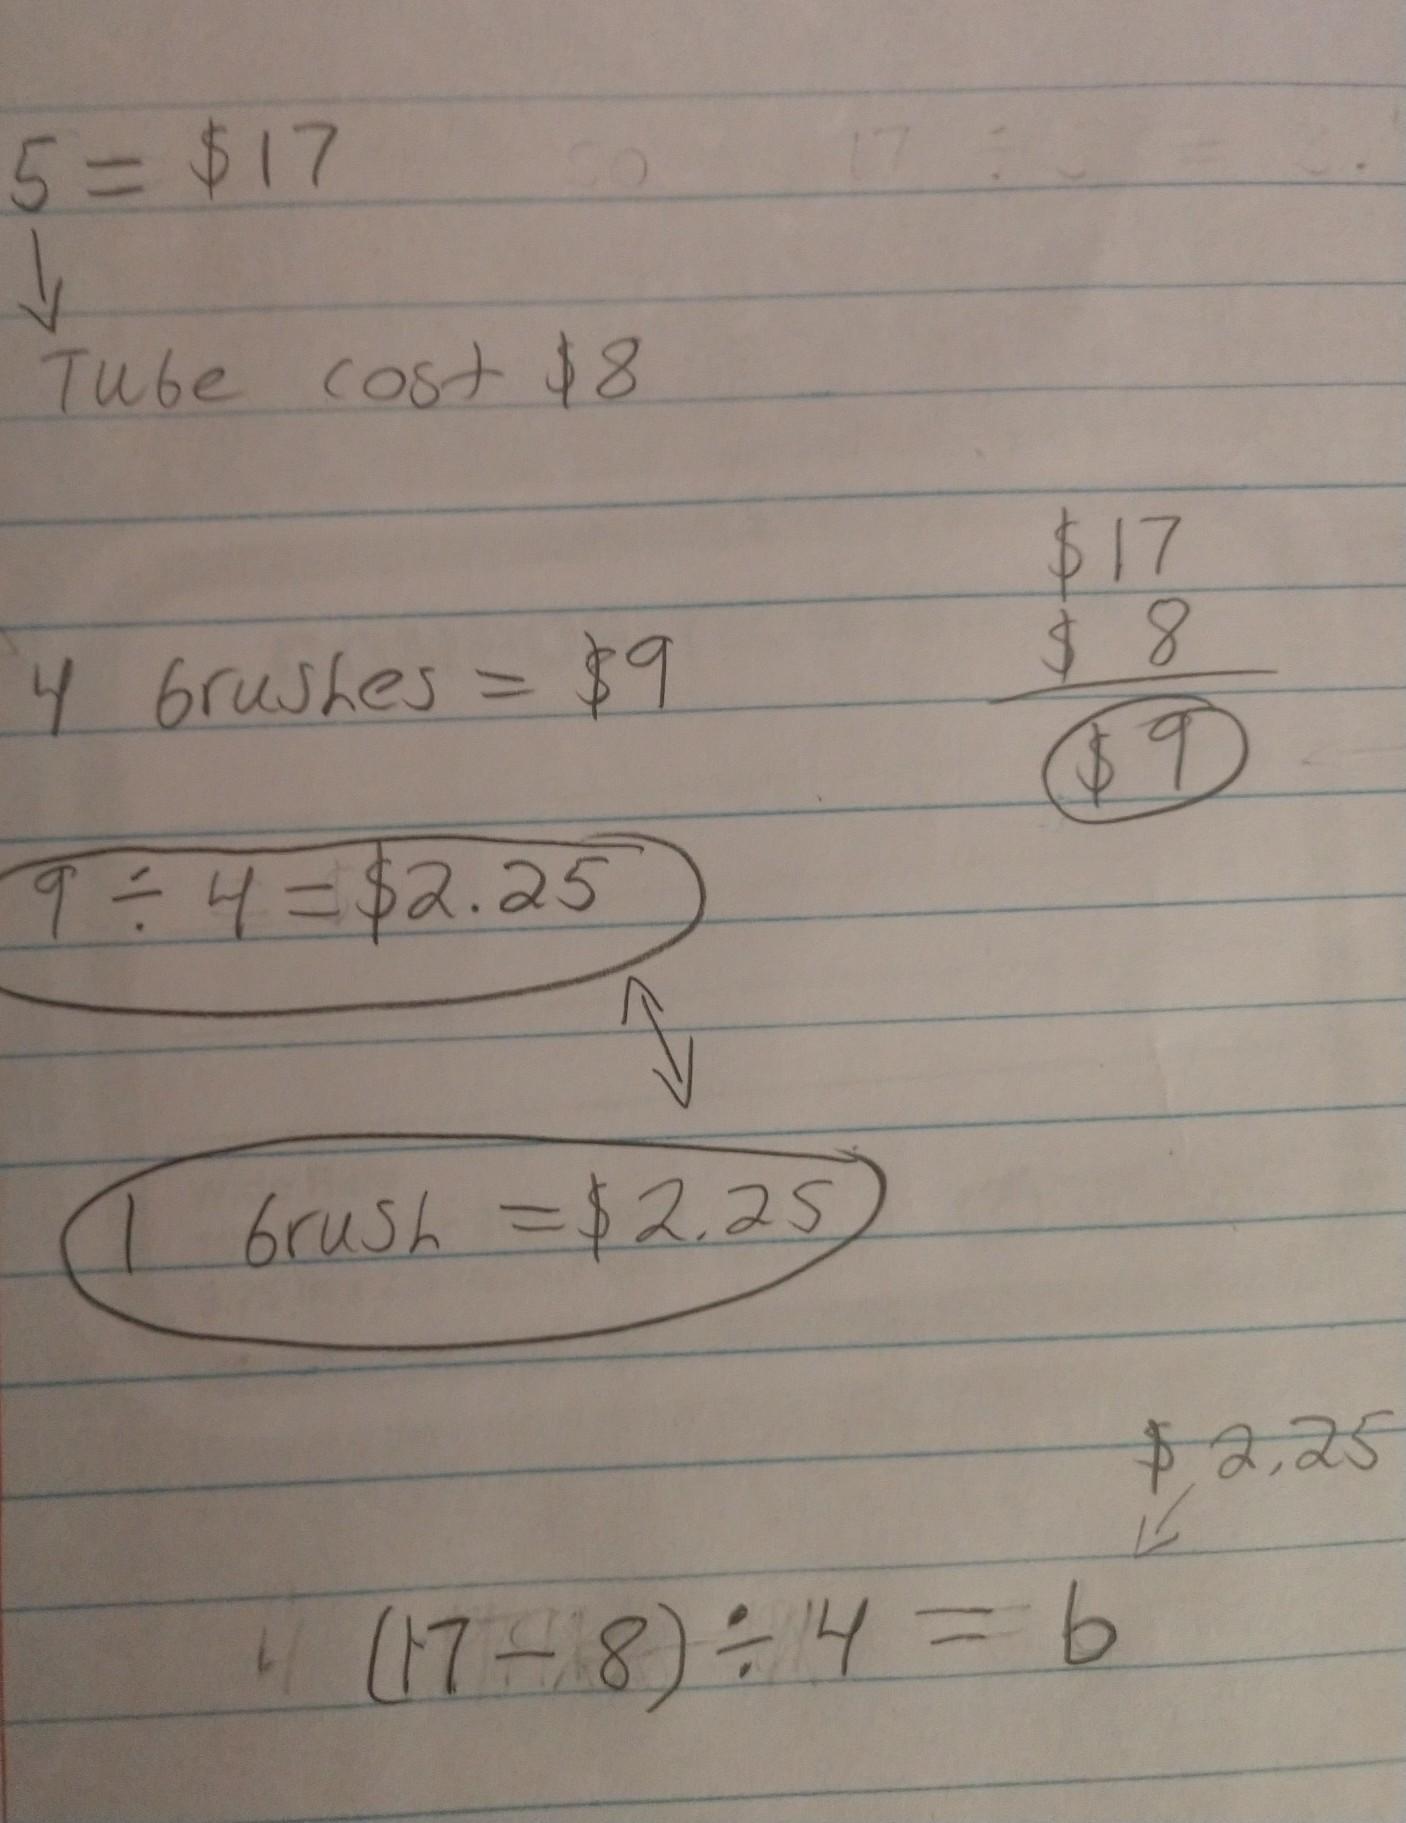 5 = $17 so 17 ÷
↓
Tube cost $8
$17
$ 8
4 brushes = $9
$9
9 ÷ 4 = $2.25
1 brush = $2.25
$2.25
(17 - 8) ÷ 4 = b